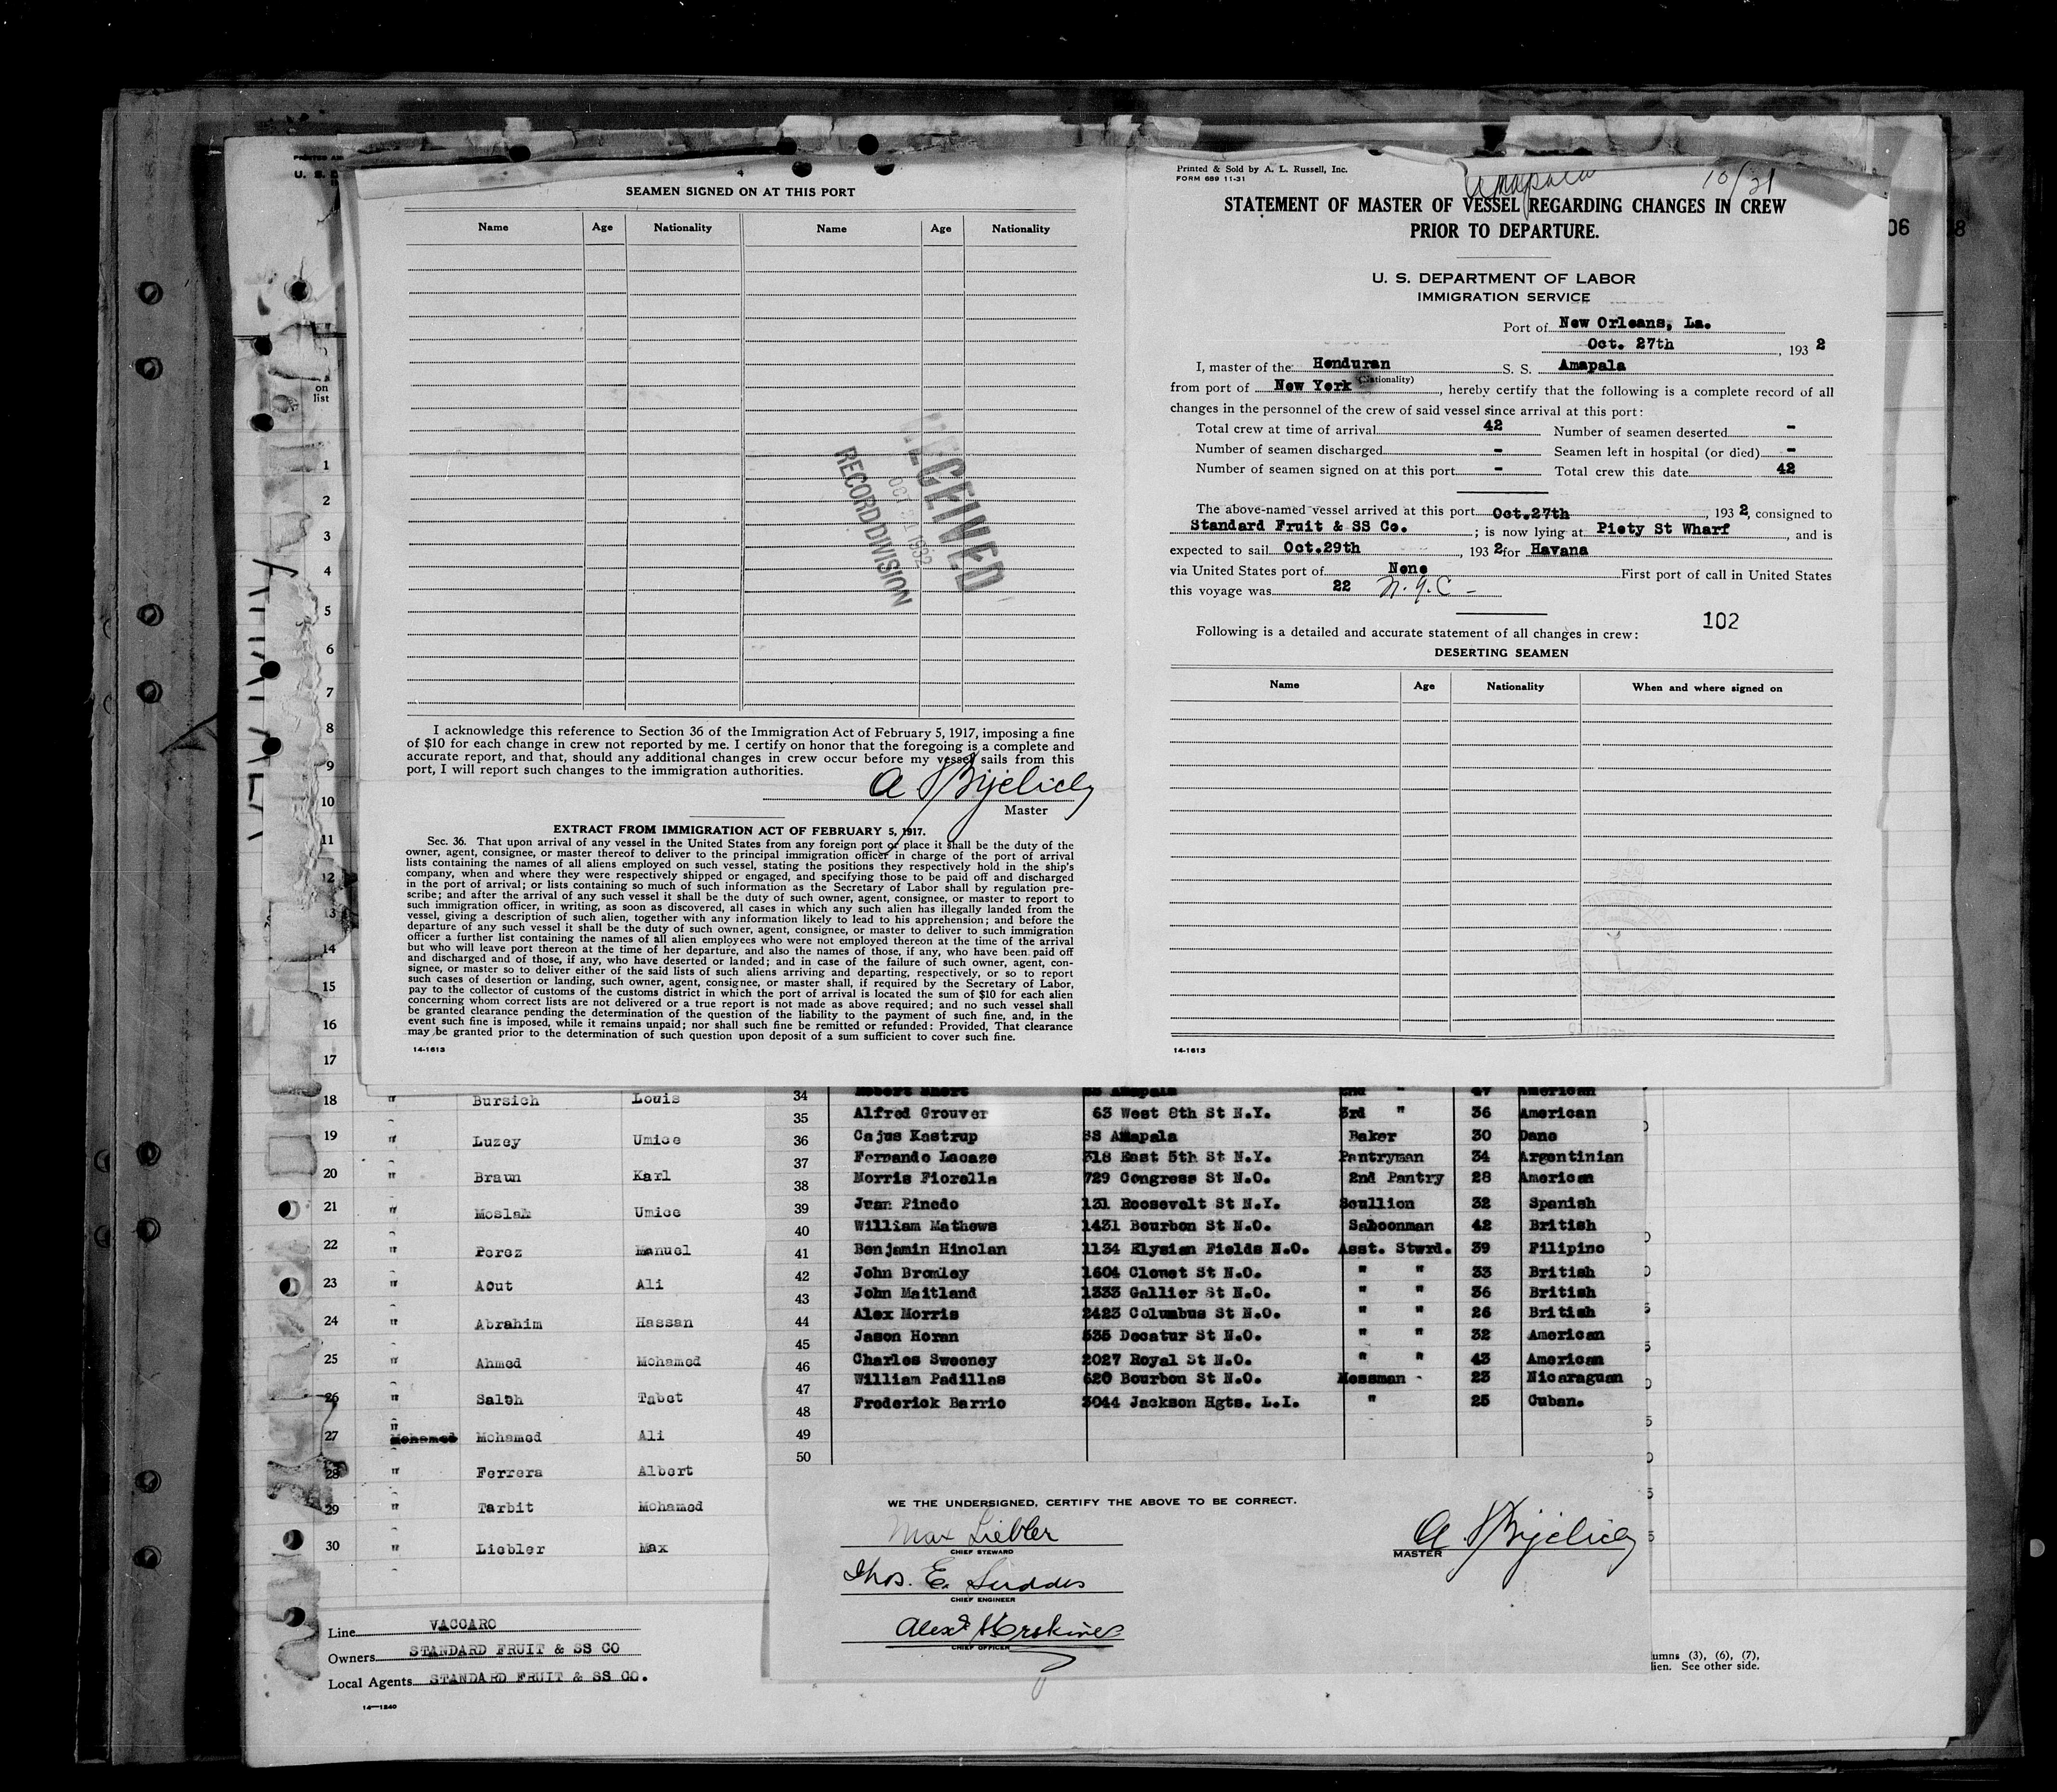 4
SEAMEN SIGNED ON AT THIS PORT
Name Age Nationality Name Age Nationality
RECEIVED
OCT 31 1932
RECORD DIVISION
I acknowledge this reference to Section 36 of the Immigration Act of February 5, 1917, imposing a fine
of $10 for each change in crew not reported by me. I certify on honor that the foregoing is a complete and
accurate report, and that, should any additional changes in crew occur before my vessel sails from this
port, I will report such changes to the immigration authorities.
Master
EXTRACT FROM IMMIGRATION ACT OF FEBRUARY 5, 1917.
Sec. 36. That upon arrival of any vessel in the United States from any foreign port or place it shall be the duty of the
owner, agent, consignee, or master thereof to deliver to the principal immigration officer in charge of the port of arrival
lists containing the names of all aliens employed on such vessel, stating the positions they respectively hold in the ship's
company, when and where they were respectively shipped or engaged, and specifying those to be paid off and discharged
in the port of arrival; or lists containing so much of such information as the Secretary of Labor shall by regulation pre-
scribe; and after the arrival of any such vessel it shall be the duty of such owner, agent, consignee, or master to report to
such immigration officer, in writing, as soon as discovered, all cases in which any such alien has illegally landed from the
vessel, giving a description of such alien, together with any information likely to lead to his apprehension; and before the
departure of any such vessel it shall be the duty of such owner, agent, consignee, or master to deliver to such immigration
officer a further list containing the names of all alien employees who were not employed thereon at the time of the arrival
but who will leave port thereon at the time of her departure, and also the names of those, if any, who have been paid off
and discharged and of those, if any, who have deserted or landed; and in case of the failure of such owner, agent, con-
signee, or master so to deliver either of the said lists of such aliens arriving and departing, respectively, or so to report
such cases of desertion or landing, such owner, agent, consignee, or master shall, if required by the Secretary of Labor,
pay to the collector of customs of the customs district in which the port of arrival is located the sum of $10 for each alien
concerning whom correct lists are not delivered or a true report is not made as above required; and no such vessel shall
be granted clearance pending the determination of the question of the liability to the payment of such fine, and, in the
event such fine is imposed, while it remains unpaid; nor shall such fine be remitted or refunded: Provided, That clearance
may be granted prior to the determination of such question upon deposit of a sum sufficient to cover such fine.
14-1613
Printed & Sold by A. L. Russell, Inc.
FORM 689 11-31
Amapala 10/31
STATEMENT OF MASTER OF VESSEL REGARDING CHANGES IN CREW
PRIOR TO DEPARTURE.
U. S. DEPARTMENT OF LABOR
IMMIGRATION SERVICE
Port of New Orleans, La.
Oct. 27th, 193 2
I, master of the Honduran S. S. Amapala
(Nationality)
from port of New York, hereby certify that the following is a complete record of all
changes in the personnel of the crew of said vessel since arrival at this port:
Total crew at time of arrival 42 Number of seamen deserted -
Number of seamen discharged - Seamen left in hospital (or died) -
Number of seamen signed on at this port - Total crew this date 42
The above-named vessel arrived at this port Oct.27th, 193 2, consigned to
Standard Fruit & SS Co. ; is now lying at Piety St Wharf, and is
expected to sail Oct.29th, 193 2 for Havana
via United States port of None First port of call in United States
this voyage was 22 N.Y.C -
102
Following is a detailed and accurate statement of all changes in crew:
DESERTING SEAMEN
Name Age Nationality When and where signed on
14-1613
06 8
on
list
1
2
3
4
5
6
7
8
9
10
11
12
13
14
15
16
17
18 " Bursich Louis
19 " Luzey Umice
20 " Braun Karl
21 " Moslah Umice
22 " Perez Manuel
23 " Aout Ali
24 " Abrahim Hassan
25 " Ahmed Mohamed
26 " Saleh Tabet
27 " Mohamed Ali
28 " Ferrera Albert
29 " Tarbit Mohamed
30 " Liebler Max
Line VACCARO
Owners STANDARD FRUIT & SS CO
Local Agents STANDARD FRUIT & SS CO.
14-1240
34 Robert Short SS Amapala 2nd " 47 American
35 Alfred Grouver 63 West 8th St N.Y. 3rd " 36 American
36 Cajus Kastrup SS Amapala Baker 30 Dane
37 Fernando Lacaze 318 East 5th St N.Y. Pantryman 34 Argentinian
38 Morris Fiorella 729 Congress St N.O. 2nd Pantry 28 American
39 Juan Pinedo 131 Roosevelt St N.Y. Scullion 32 Spanish
40 William Mathews 1431 Bourbon St N.O. Saloonman 42 British
41 Benjamin Hinolan 1134 Elysian Fields N.O. Asst. Stwrd. 39 Filipino
42 John Bromley 1604 Clouet St N.O. " " 33 British
43 John Maitland 1333 Gallier St N.O. " " 36 British
44 Alex Morris 2423 Columbus St N.O. " " 26 British
45 Jason Horan 535 Decatur St N.O. " " 32 American
46 Charles Sweeney 2027 Royal St N.O. " " 43 American
47 William Padillas 620 Bourbon St N.O. Messman 23 Nicaraguan
48 Frederick Barrio 3044 Jackson Hgts. L.I. " 25 Cuban.
49
50
WE THE UNDERSIGNED, CERTIFY THE ABOVE TO BE CORRECT.
Max Liebler
CHIEF STEWARD
Thos. E. Suddes
CHIEF ENGINEER
Alex Erskine
CHIEF OFFICER
MASTER
umns (3), (6), (7),
lien. See other side.